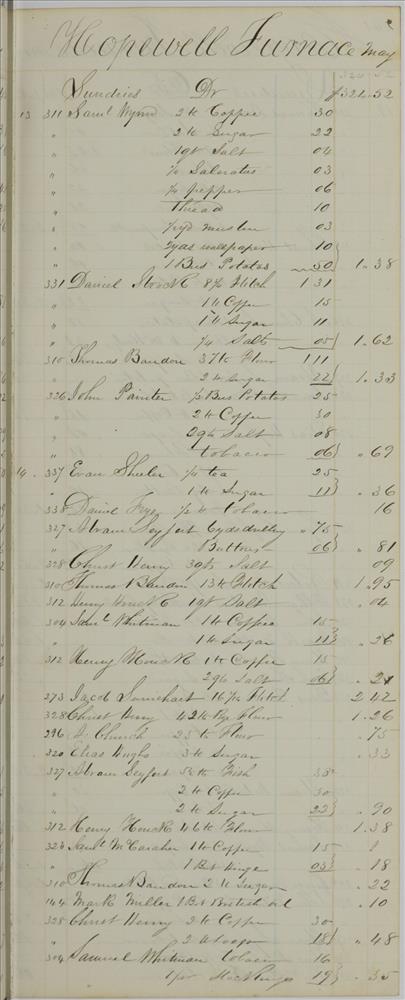 Hopewell Furnace May
Sundries Dr 321.52
13 311 Saml Wynn 2 lb Coffee 30
" 2 lb Sugar 22
" 1 qt Salt 04
" Saleratus 03
" 1/4 pepper 06
" Thread 10
" muslin 03
" wallpaper 10
" 1 Bus Potatos 50 1.38
331 Daniel Flitch 1 31
" 1 lb Coffee 15
" 1 lb Sugar 11
" 1/4 Salt 05 1.62
310 Thomas Baudon 37 lb Flour 1 11
" 2 lb Sugar 22 1.33
326 John Painter 1/2 Bus Potatos 25
" 2 lb Coffee 30
" 2 qts Salt 08
" tobacco 06 .69
14 337 Evan Sheeler 1/4 tea 25
" 1 lb Sugar 11 .36
338 Daniel Frye 1/2 lb tobacco 16
327 Abram Seyfert 6 yds .75
" Buttons 06 .81
328 Christ Henry 3 qts Salt 09
310 Thomas Baudon 13 lb Flitch 1.95
312 Henry Houck 1 qt Salt .04
304 Saml Whitman 1 lb Coffee 15
" 1 lb Sugar 11 .26
312 Henry Houck 1 lb Coffee 15
" 2 qts Salt 06 .21
273 Jacob Lumehart Flitch 2 42
328 Christ Henry 42 lb Rye Flour 1.26
296 Church 25 lb Flour .75
320 Elias Waghs 3 lb Sugar .33
327 Abram Seyfert Fish 38
" 2 lb Coffee 30
" 2 lb Sugar 22 .90
312 Henry Houck 46 lb Flour 1.38
326 Saml McCaraher 1 lb Coffee 15
" 1 Bt Hinge 03 .18
310 Thomas Baudon 2 lb Sugar .22
144 Mark Miller 1 Bt British oil .10
328 Christ Henry 2 lb Coffee 30
" 2 18 .48
304 Samuel Whitman tobacco 16
1 pr Stockings 19 .35